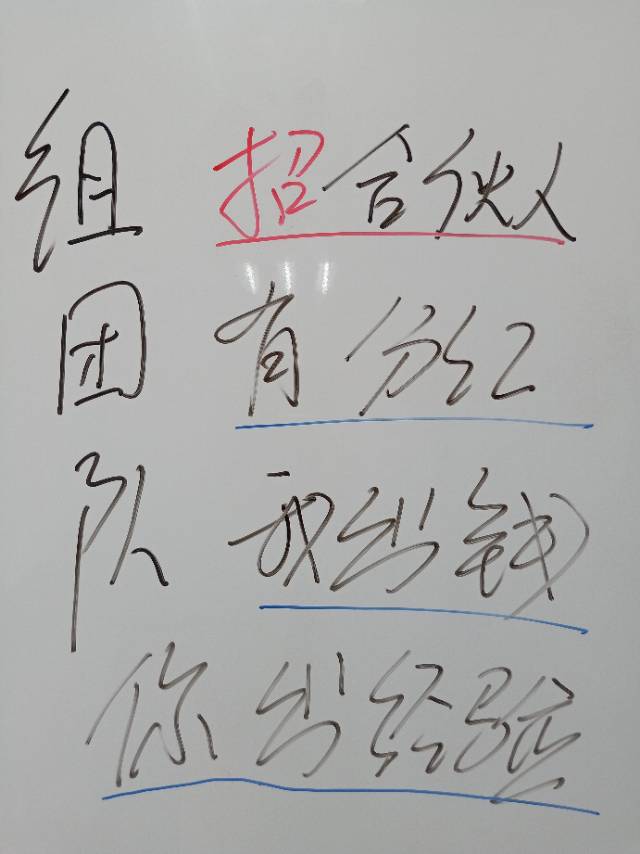 组 招合伙人
团 有分红
队 我出钱
你出经验